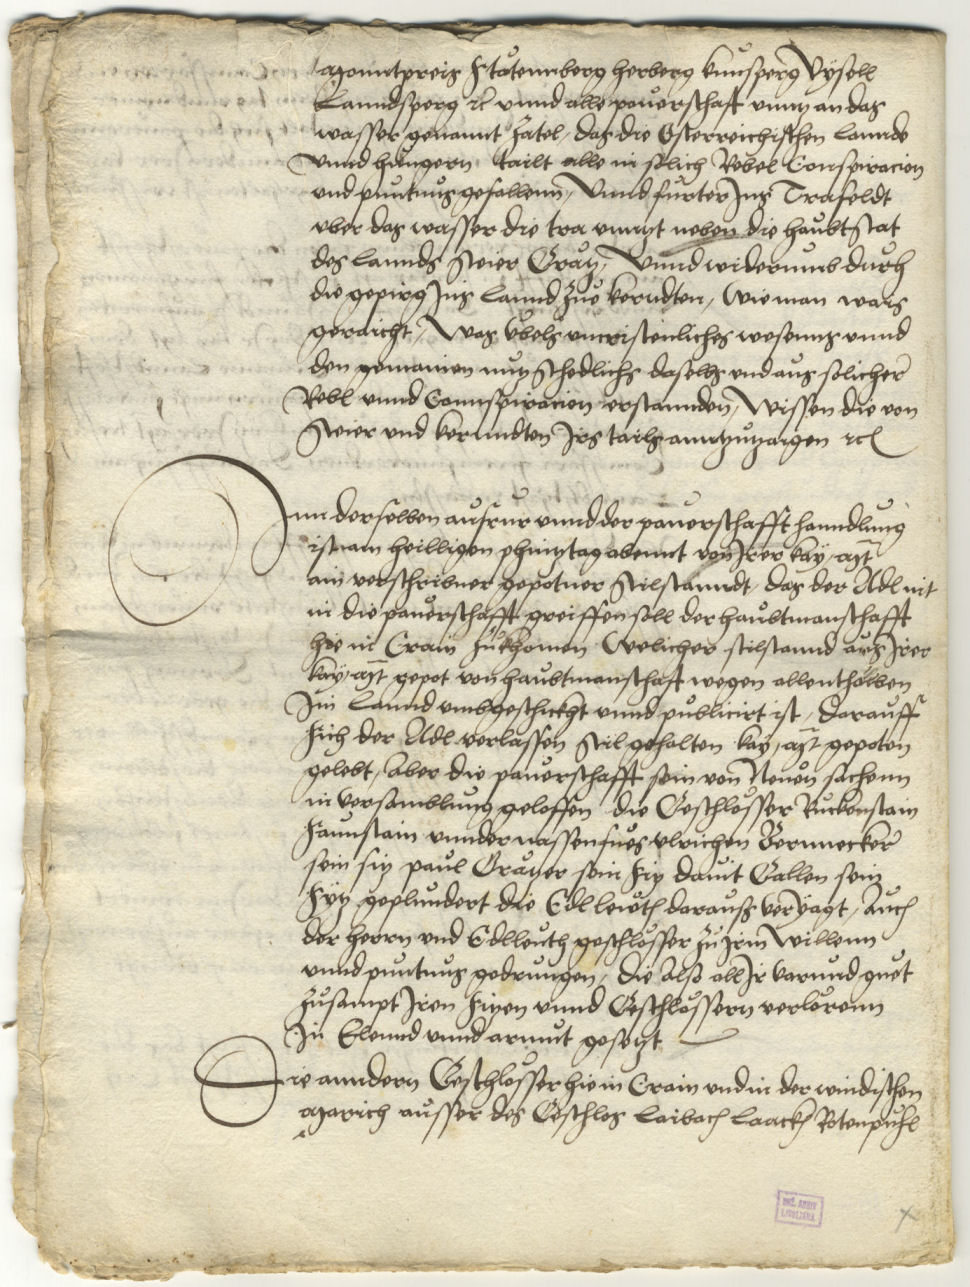 Monntpreis Statennberg herberg kunsperg Vysell
Lanndsperg rc vnnd alle paurschaft vnntz an das
wasser genannt Zatel, das die Osterreichischen lannde
vnnd hungern tailt alle in solich Rebel Conspiracion
vnd puntnus gefallenn, Vnnd furter Ins Trafeldt
vber das wasser die tra vnntzt neben die haubt Stat
des lannds Steier Grätz, Vnnd widerumb durch
die gepirg Ins lannd zue kerndten, Wie man wais
geraicht, Was vbels vncristenliches wesenns vnnd
den gemainen nutz schedlichs daselbs vnd aus solicher
Rebl vnnd Connspiracion erstannden, Wissen die von
Steier vnd kernndten Irs tails antzutzaigen rc
Inn derselben aufrur vnnd der paurschafft hanndlung
ist am heilligen phintztag abennt von Irer kay. Mt.
ain verschribner gepotner Stilstanndt, das der Adl nit
in die paurschafft greiffen soll der haubtmanschafft
hie in Crain zukhomen Welicher stilstannd aus Irer
kay. Mt. gepot von haubtmanschaft wegen allenthalben
Im lannd vmbgeschickht vnnd publicirt ist, darauff
sich der Adl verlassen Stil gehalten kay. Mt. gepoten
gelebt, Aber die paurschafft sein von Neuen sachenn
in versamblung geloffen die Geschlosser Ruckenstain
Saunstain vnnder nassenfues vlrichen Wernnecker
sein sitz paul Gräuer sein sitz dauit Gallen sein
Sytz geplundert die Edlleuth daraus veryagt, Auch
der herrn vnd Edlleuth geschlosser zu Irm Willenn
vnnd puntnus gedrungen, die also all Ir varund guet
zusampt Iren sitzen vnnd Geschlossern verlorenn
In Elennd vnnd armut gesetzt
Die anndern Geschlosser hie in Crain vnd in der windischen
Marich ausser des Geschlos Laibach Laackh Rotenpuhl
DRŽ. ARHIV
LJUBLJANA